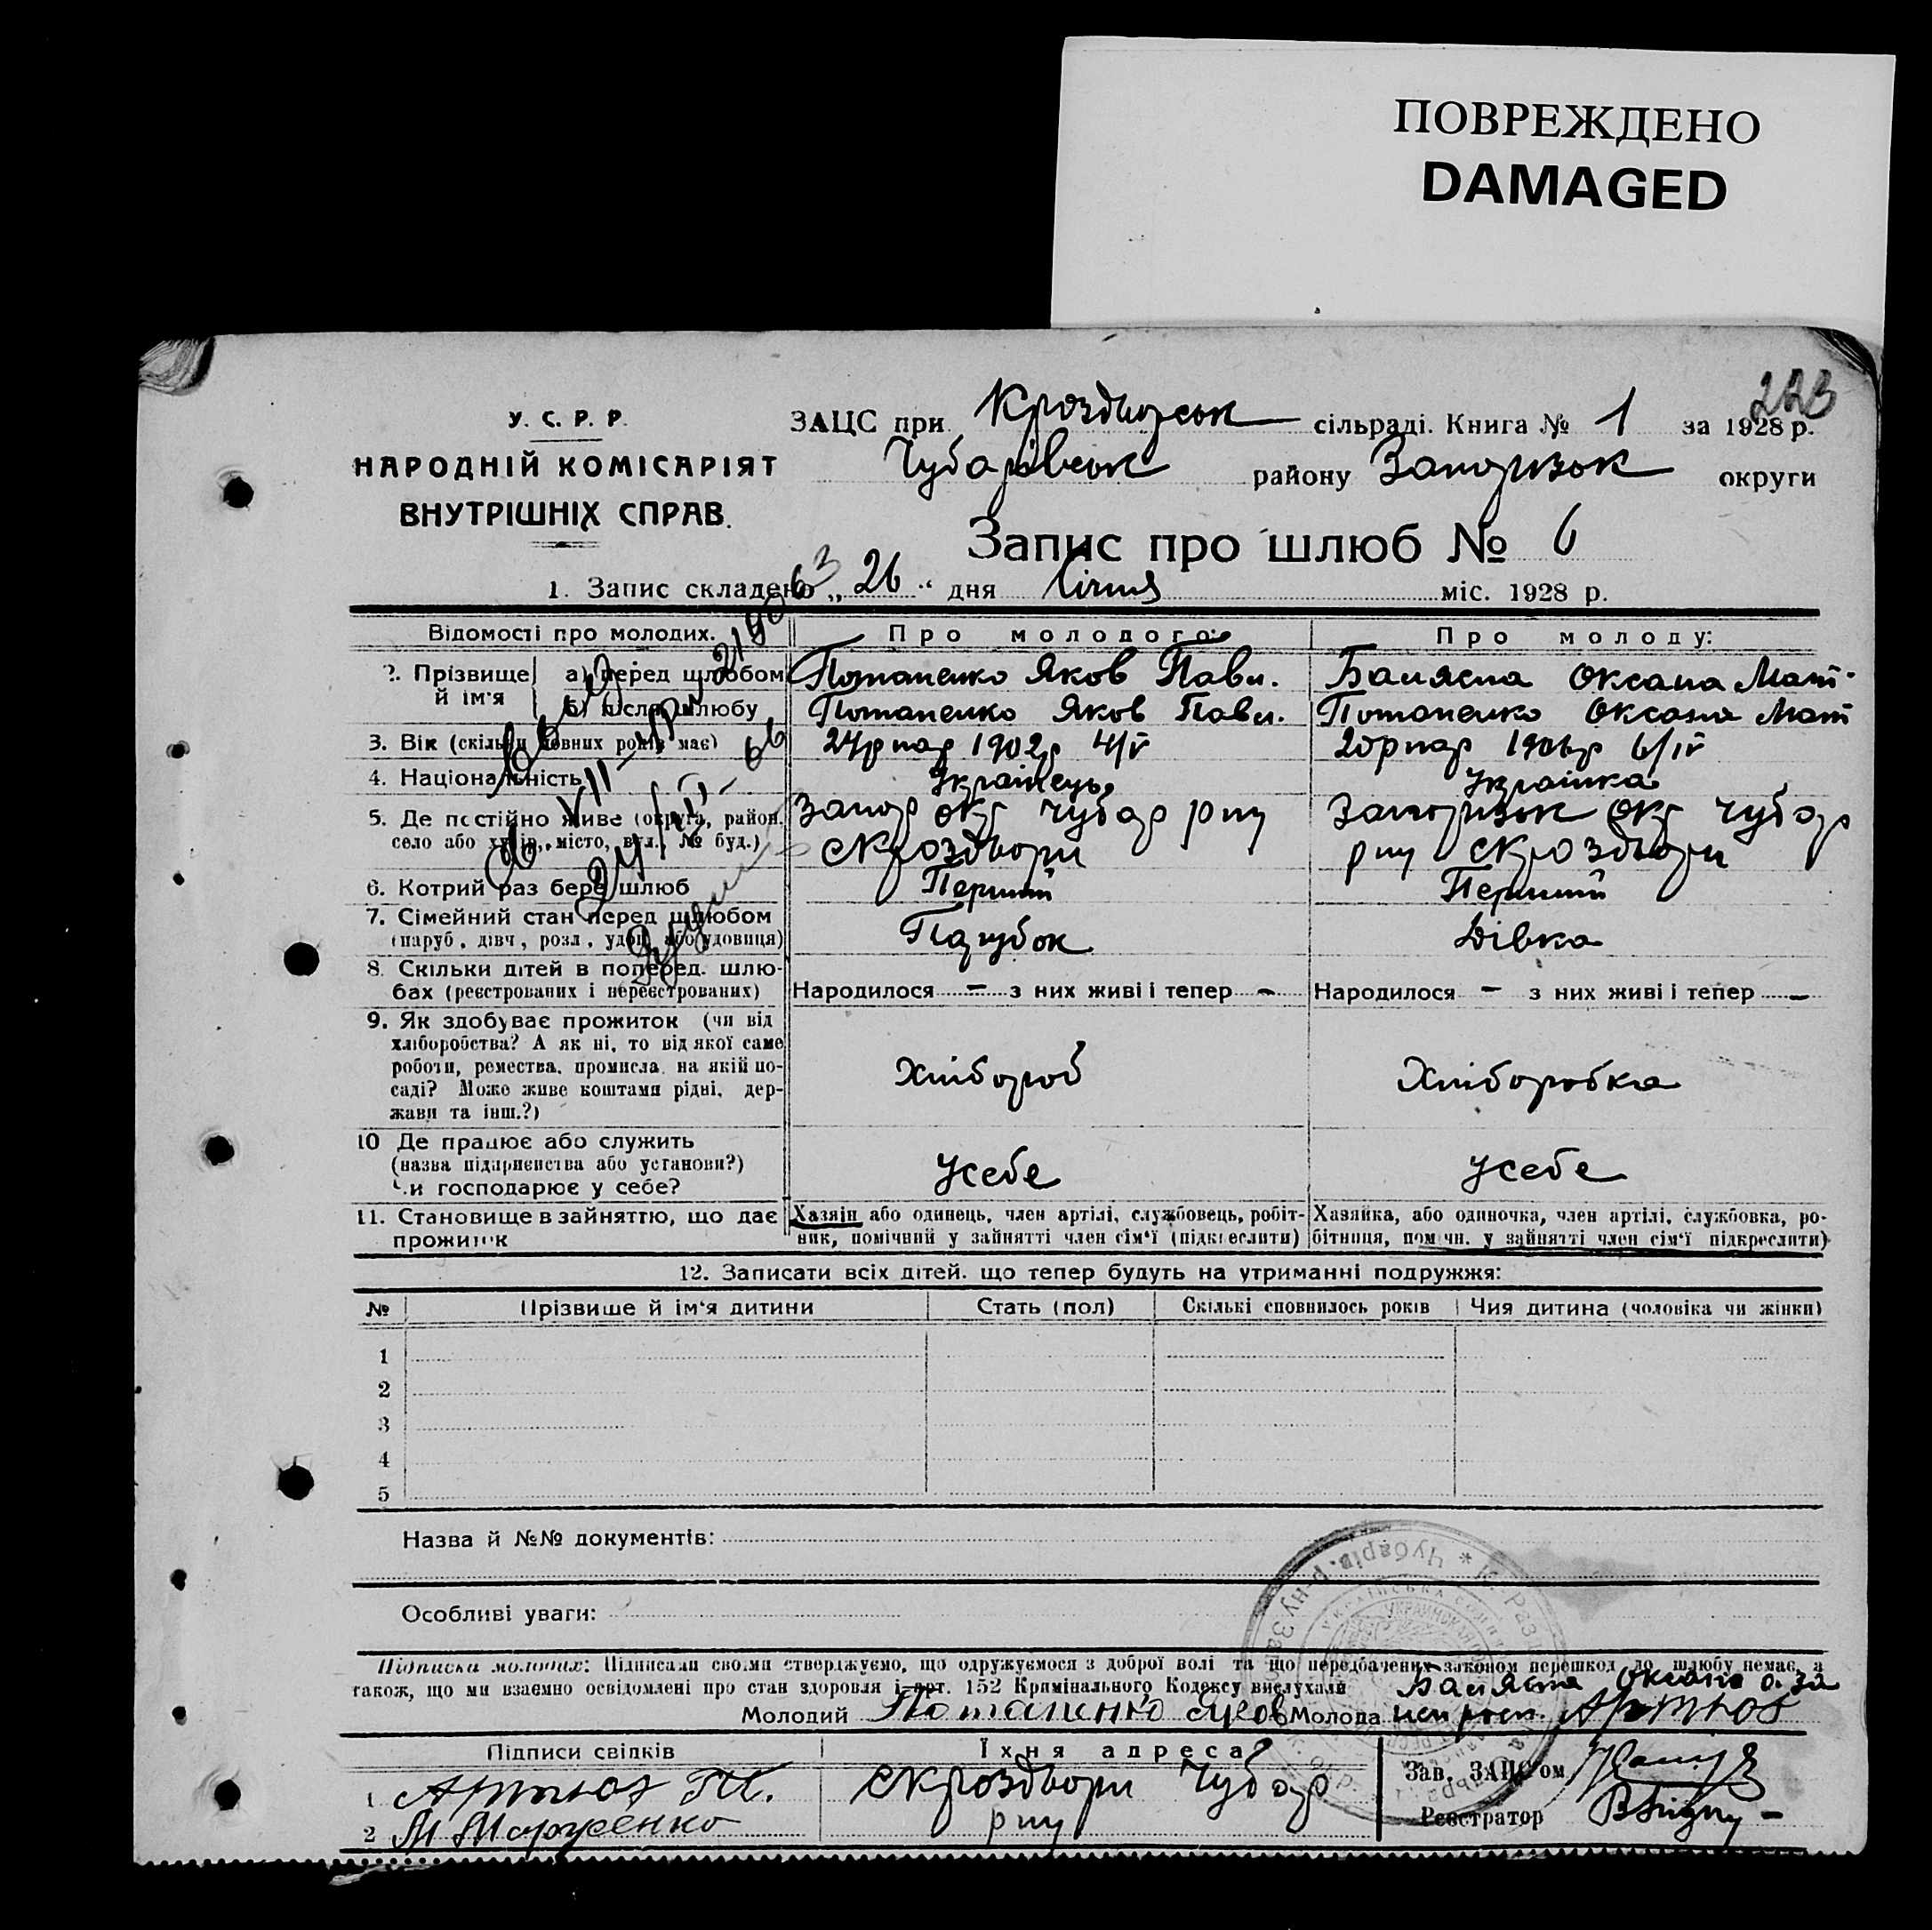 ПОВРЕЖДЕНО
DAMAGED
223
У. С. Р. Р.
НАРОДНІЙ КОМІСАРІЯТ
ВНУТРІШНІХ СПРАВ.
ЗАЦС при Кроздворськ сільраді. Книга № 1 за 1928 р.
Чубарівськ району Запоризьк округи
Запис про шлюб № 6
1. Запис складено „ 26 “ дня Січня міс. 1928 р.
Відомості про молодих. Про молодого: Про молоду:
2. Прізвище й ім'я а) перед шлюбом Потапенко Яков Павл. Балясна Оксана Мат.
б) після шлюбу Потапенко Яков Павл. Потапенко Оксана Мат
3. Вік (скільки повних років має) 24р нар 1902р 4/IV 20р нар 1906р 6/IV
4. Національність Українець Українка
5. Де постійно живе (округа, район, село або хутір, місто, вул., № буд.) Запор окр Чубар рну Скроздвори Запоризьк окр Чубар рну Скроздвори
6. Котрий раз бере шлюб Перший Перший
7. Сімейний стан перед шлюбом Парубок Дівка
(паруб., дівч., розл., удов. або удовиця)
8. Скільки дітей в поперед. шлюбах (реєстрованих і нереєстрованих) Народилося — з них живі і тепер — Народилося — з них живі і тепер —
9. Як здобуває прожиток (чи від
хліборобства? А як ні, то від якої саме
роботи, ремества, промисла, на якій по-
саді? Може живе коштами рідні, дер-
жави та інш.?) Хлібороб Хліборобка
10 Де працює або служить
(назва підприємства або установи?)
Чи господарює у себе? Усебе Усебе
11. Становище в зайняттю, що дає
прожиток
Хазяін або одинець, член артілі, службовець, робіт-
ник, помічний у зайнятті член сім'ї (підкреслити)
Хазяйка, або одиночка, член артілі, службовка, ро-
бітниця, помічн. у зайнятті член сім'ї підкреслити)
12. Записати всіх дітей, що тепер будуть на утриманні подружжя:
№ Прізвише й ім'я дитини Стать (пол) Скількі сповнилось років Чия дитина (чоловіка чи жінки)
1
2
3
4
5
Назва й №№ документів:
Особливі уваги:
Підписка молодих: Підписали своїми стверджуємо, що одружуємося з доброї волі та що передбачених законом перешкод до шлюбу немає, а
також, що ми взаємно освідомлені про стан здоровля і арт. 152 Кримінального Кодексу вислухали Балясна Оксана а за
Молодий Потапенко Яков Молода неп росп. Артюх
Підписи свідків Їхня адреса Зав. ЗАЦС'ом
1 Артюх Скроздвори Чубар
2 М Марченко рну Реєстратор